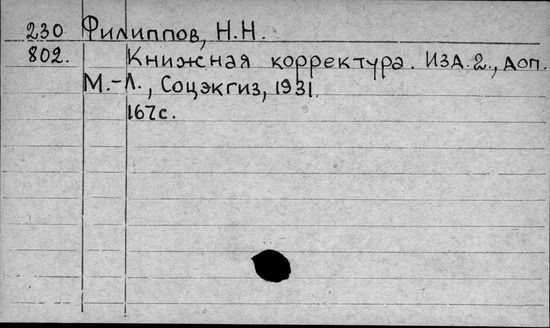 230 Филиппов, Н.Н.
802. Книжная корректура. Изд. 2., доп.
М.-Л., Соцэкгиз, 1931.
167с.